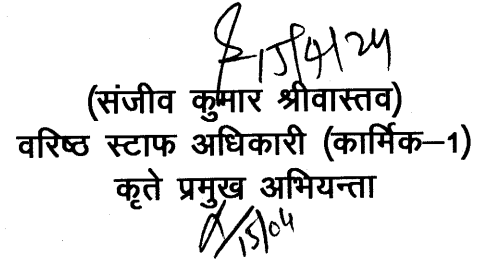 15/4/24
(संजीव कुमार श्रीवास्तव)
वरिष्ठ स्टाफ अधिकारी (कार्मिक–1)
कृते प्रमुख अभियन्ता
15/04